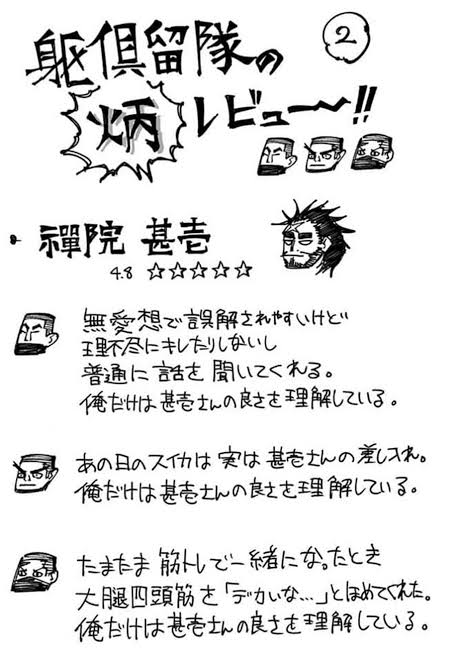 躯倶留隊の
②
炳レビュー〜!!
禪院 甚壱
4.8 ☆☆☆☆☆
無愛想で誤解されやすいけど
理不尽にキレたりしないし
普通に話を聞いてくれる。
俺だけは甚壱さんの良さを理解している。
あの日のスイカは実は甚壱さんの差し入れ。
俺だけは甚壱さんの良さを理解している。
たまたま筋トレで一緒になったとき
大腿四頭筋を「デカいな…」とほめてくれた。
俺だけは甚壱さんの良さを理解している。